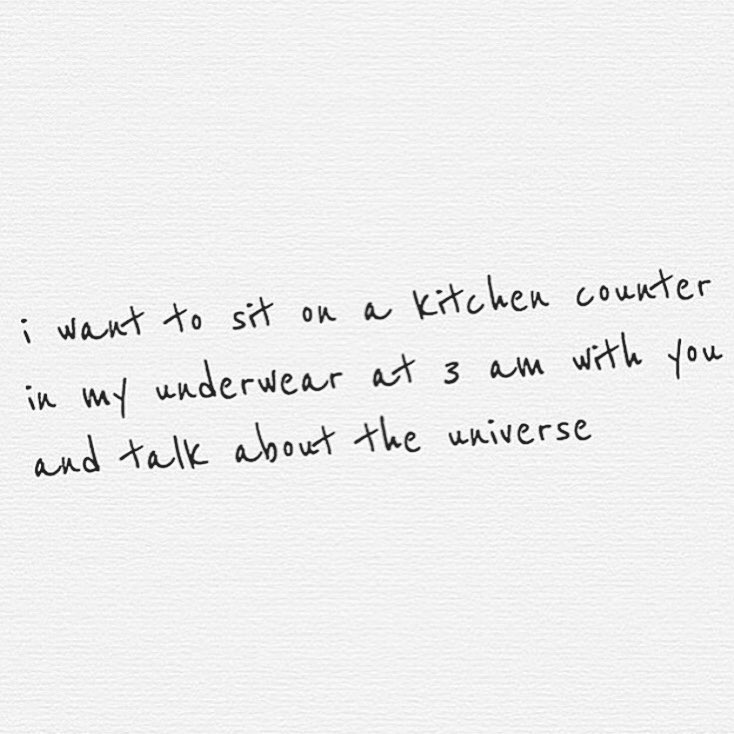 i want to sit on a kitchen counter
in my underwear at 3 am with you
and talk about the universe